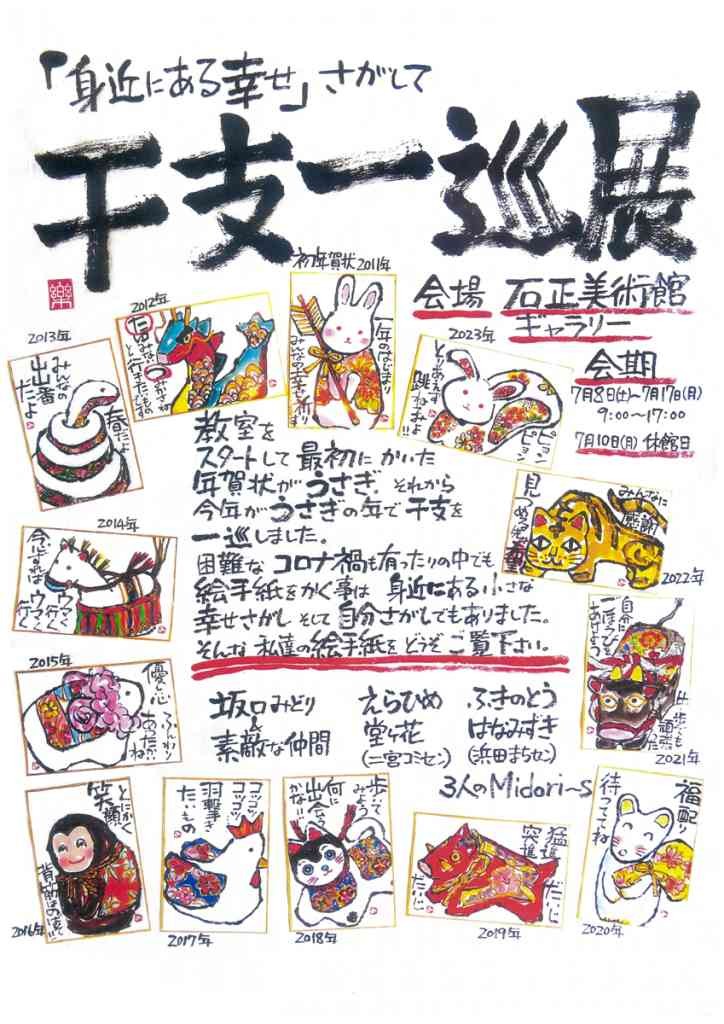 「身近にある幸せ」さがして
干支一巡展
樂
会場 石正美術館
ギャラリー
会期
7月8日(土)〜7月17日(月)
9:00〜17:00
7月10日(月) 休館日
初年賀状2011年
一年のはじまり
みんなの幸せ祈ります
2012年
2013年
みんなの
出番
だよ
春だよ
2023年
とりあえず
跳ねるよ
ピョン
ピョン
教室を
スタートして最初にかいた
年賀状がうさぎ それから
今年がうさぎの年で干支を
一巡しました。
困難なコロナ禍も有ったりの中でも
絵手紙をかく事は 身近にある小さな
幸せさがし そして自分さがしでもありました。
そんな私達の絵手紙をどうぞご覧下さい。
2014年
ウマく行く
ウマく行く
みんなに
感謝
2022年
2015年
優し心
ふんわり
あったかい
ね
自分に
ごほうびも
あげよう
2021年
坂口みどり
&
素敵な仲間
えらびめ
堂々花
(二宮コミセン)
ふきのとう
はなみずき
(浜田まちセン)
3人のMidori〜s
とにかく
笑顔
2016年
コツコツ
コツコツ
羽撃き
たいもの
2017年
歩いて
みよう
何に
出会う
かな!!
2018年
猛進
突進
だいじ
だいじ
2019年
福配り
待っててね
2020年